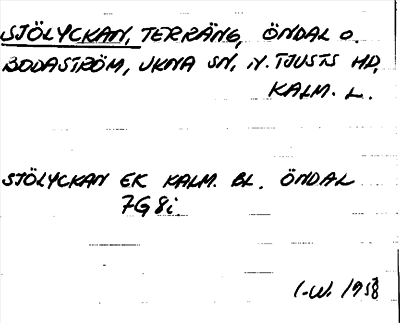 SJÖLYCKAN, TERRÄNG, ÖNDAL O.
BODASTRÖM, UKNA SN, N. TJUSTS HD,
KALM. L.
SJÖLYCKAN EK KALM. BL. ÖNDAL
7G8i.
I.W. 1958